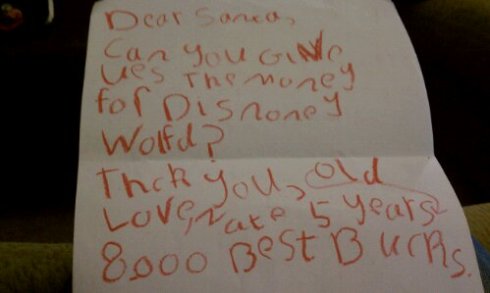 Dear Santa,
Can you Give
ues The money
for Disnoney
Wolfd?
Thck you,
Love, Nate 5 years old
8000 Best Bucks.